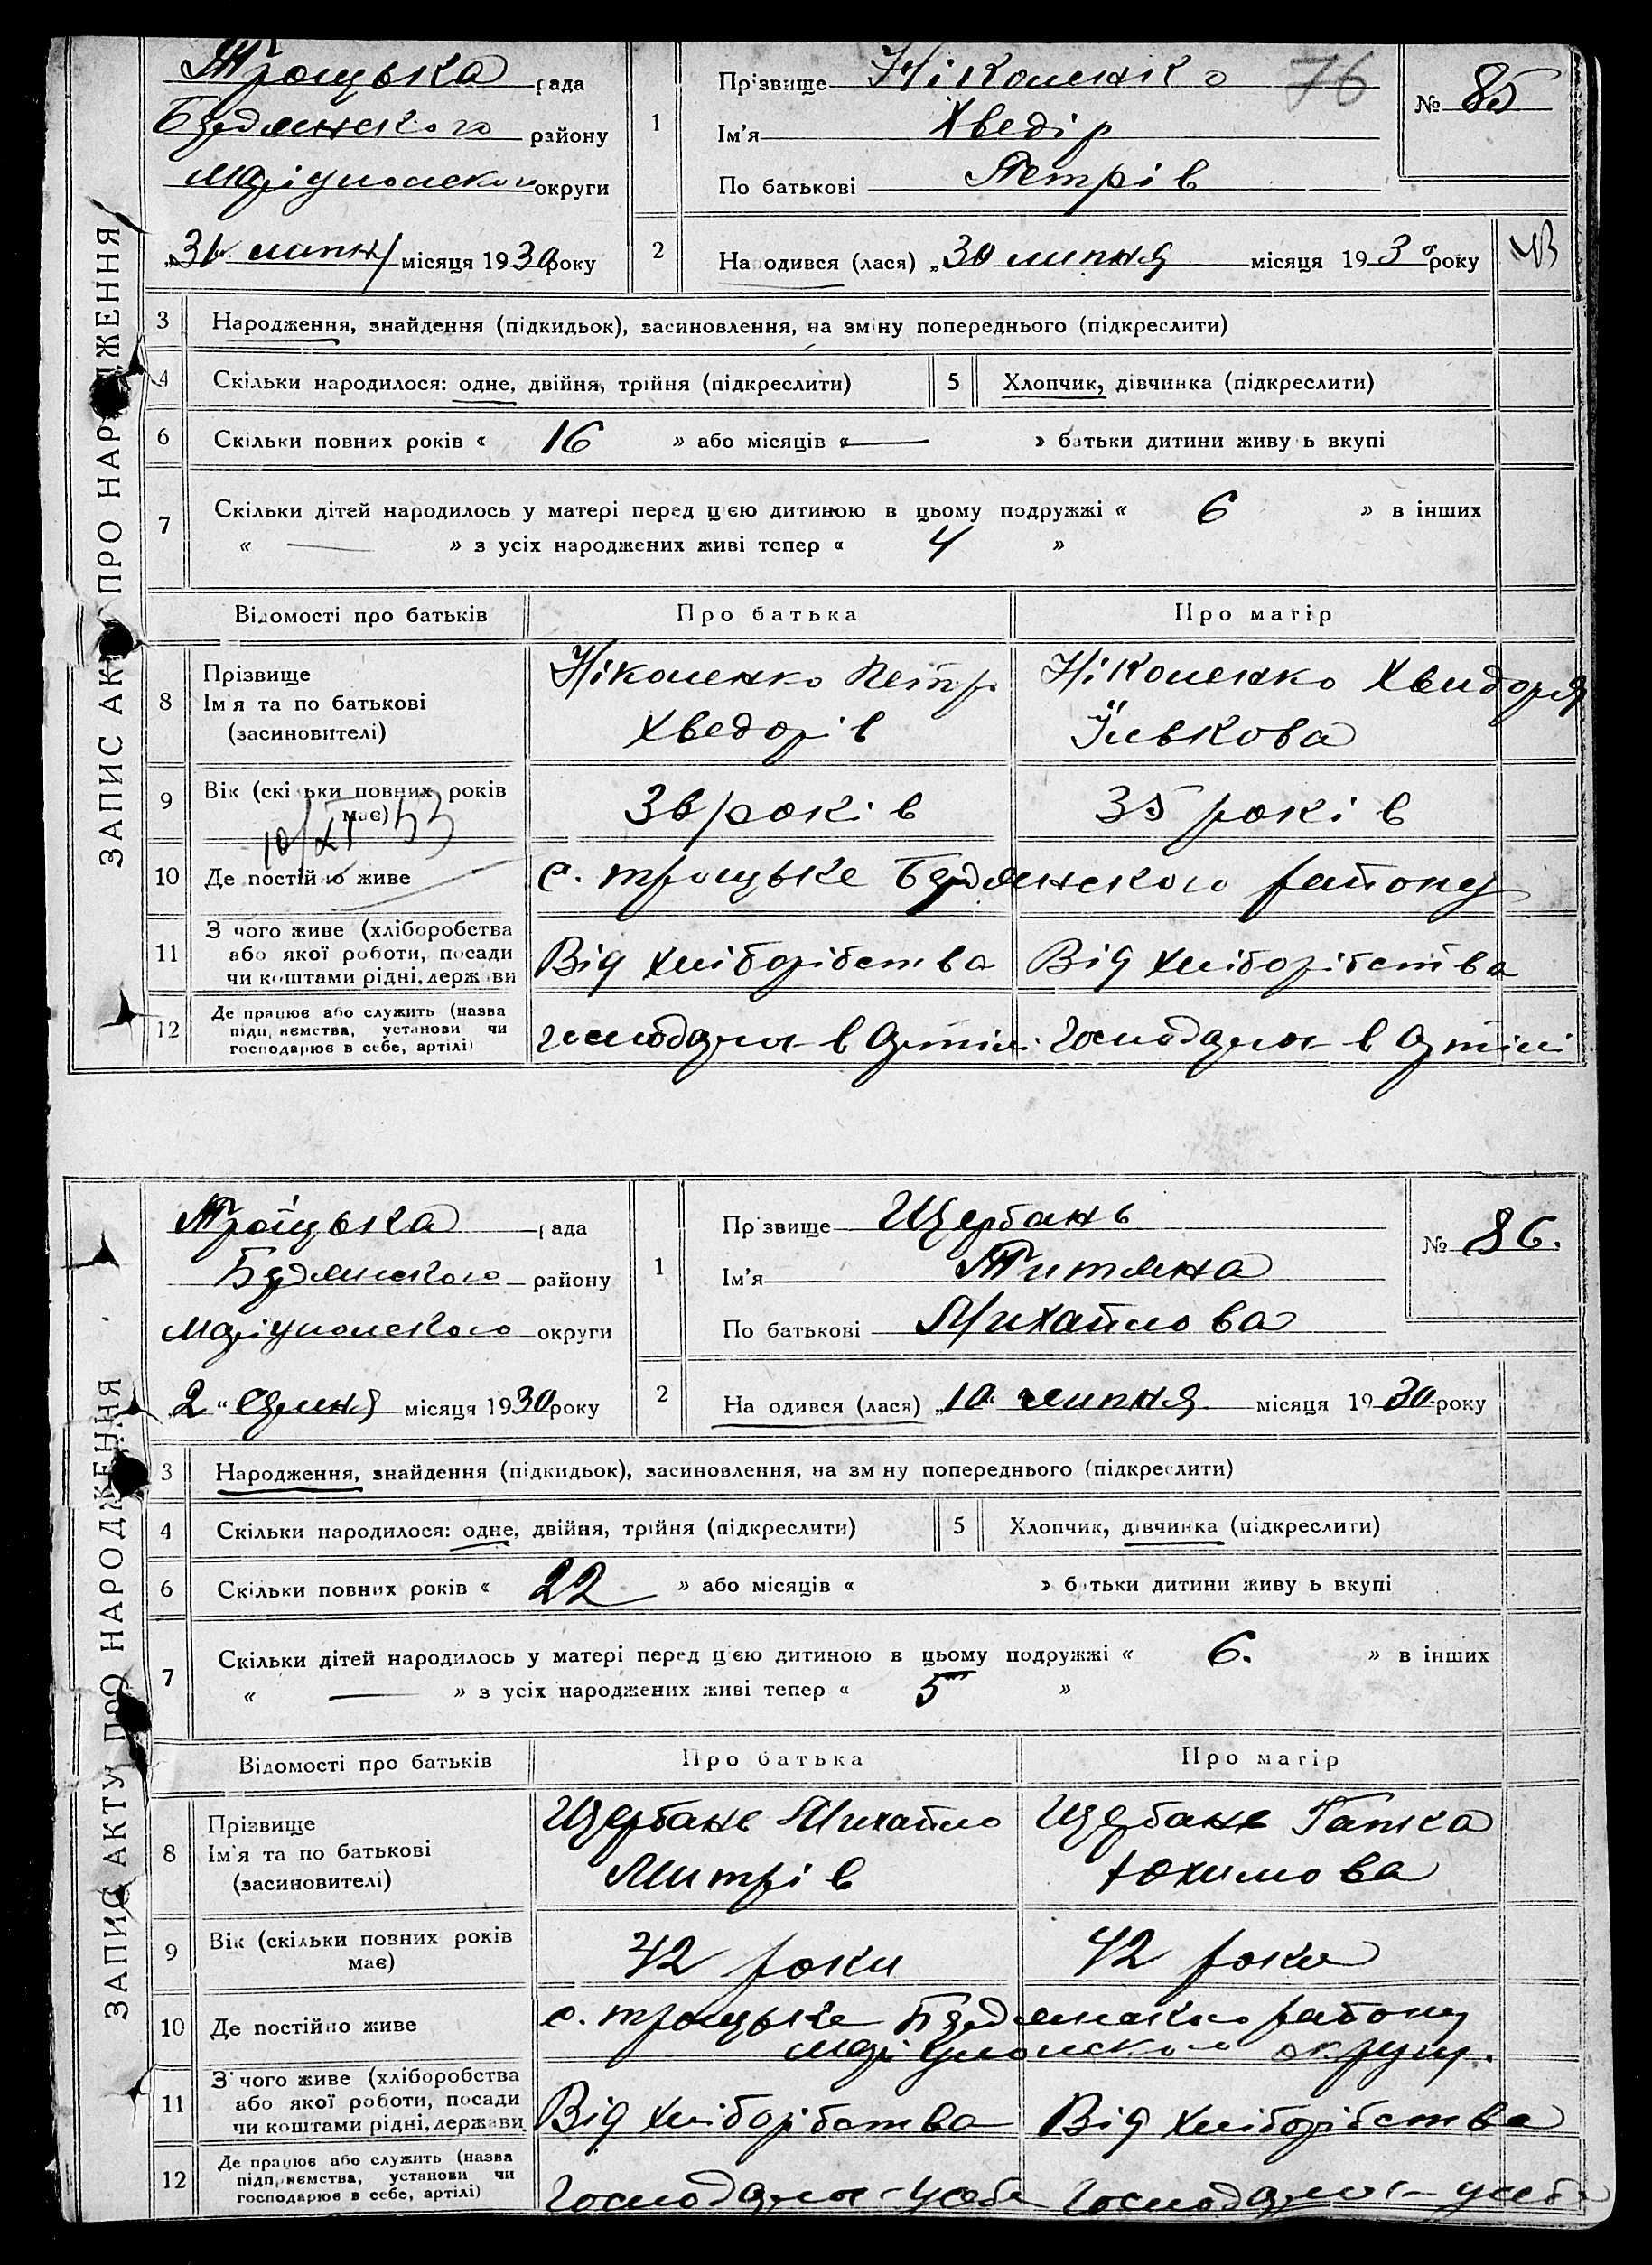 ЗАПИС АКТУ ПРО НАРОДЖЕННЯ
Троцька рада
Бердянського району
Маріупольського округи
„31„ липня місяця 1930 року
1 Прізвище Ніколенко 76
Ім'я Хведір
По батькові Петрів
№ 85
2 Народився (лася) „30 липня місяця 1930 року
3 Народження, знайдення (підкидьок), засиновлення, на зміну попереднього (підкреслити)
4 Скільки народилося: одне, двійня, трійня (підкреслити) 5 Хлопчик, дівчинка (підкреслити)
6 Скільки повних років « 16 » або місяців « — » батьки дитини живуть вкупі
7 Скільки дітей народилось у матері перед цією дитиною в цьому подружжі « 6 » в інших
« — » з усіх народжених живі тепер « 4 »
Відомості про батьків Про батька Про матір
8 Прізвище Ім'я та по батькові (засиновителі)
Ніколенко Петр Ніколенко Хвидоря
Хведорів Ількова
9 Вік (скільки повних років має) 36 років 35 років
10/XI 53
10 Де постійно живе с. Троцьке Бердянского району
11 З чого живе (хліборобства або якої роботи, посади чи коштами рідні, держави Від хліборібства Від хліборібства
12 Де працює або служить (назва підприємства, установи чи господарює в себе, артілі) господарює в артілі господарює в артілі
ЗАПИС АКТУ ПРО НАРОДЖЕННЯ
Троїцька рада
Бердянського району
Маріупольского округи
„2" серпня місяця 1930 року
1 Прізвище Щербань
Ім'я Титяна
По батькові Михайлова
№ 86.
2 Народився (лася) „10. липня місяця 1930 року
3 Народження, знайдення (підкидьок), засиновлення, на зміну попереднього (підкреслити)
4 Скільки народилося: одне, двійня, трійня (підкреслити) 5 Хлопчик, дівчинка (підкреслити)
6 Скільки повних років « 22 » або місяців « » батьки дитини живуть вкупі
7 Скільки дітей народилось у матері перед цією дитиною в цьому подружжі « 6. » в інших
« — » з усіх народжених живі тепер « 5 »
Відомості про батьків Про батька Про матір
8 Прізвище Ім'я та по батькові (засиновителі)
Щербань Михайло Щербань Гапка
Митрів Юхимова
9 Вік (скільки повних років має) 42 роки 42 роки
10 Де постійно живе с. Троцьке Бердянського району
Маріупольского округи.
11 З чого живе (хліборобства або якої роботи, посади чи коштами рідні, держави Від хліборібства Від хліборібства
12 Де працює або служить (назва підприємства, установи чи господарює в себе, артілі) Господарює - у себе Господарює - у себе